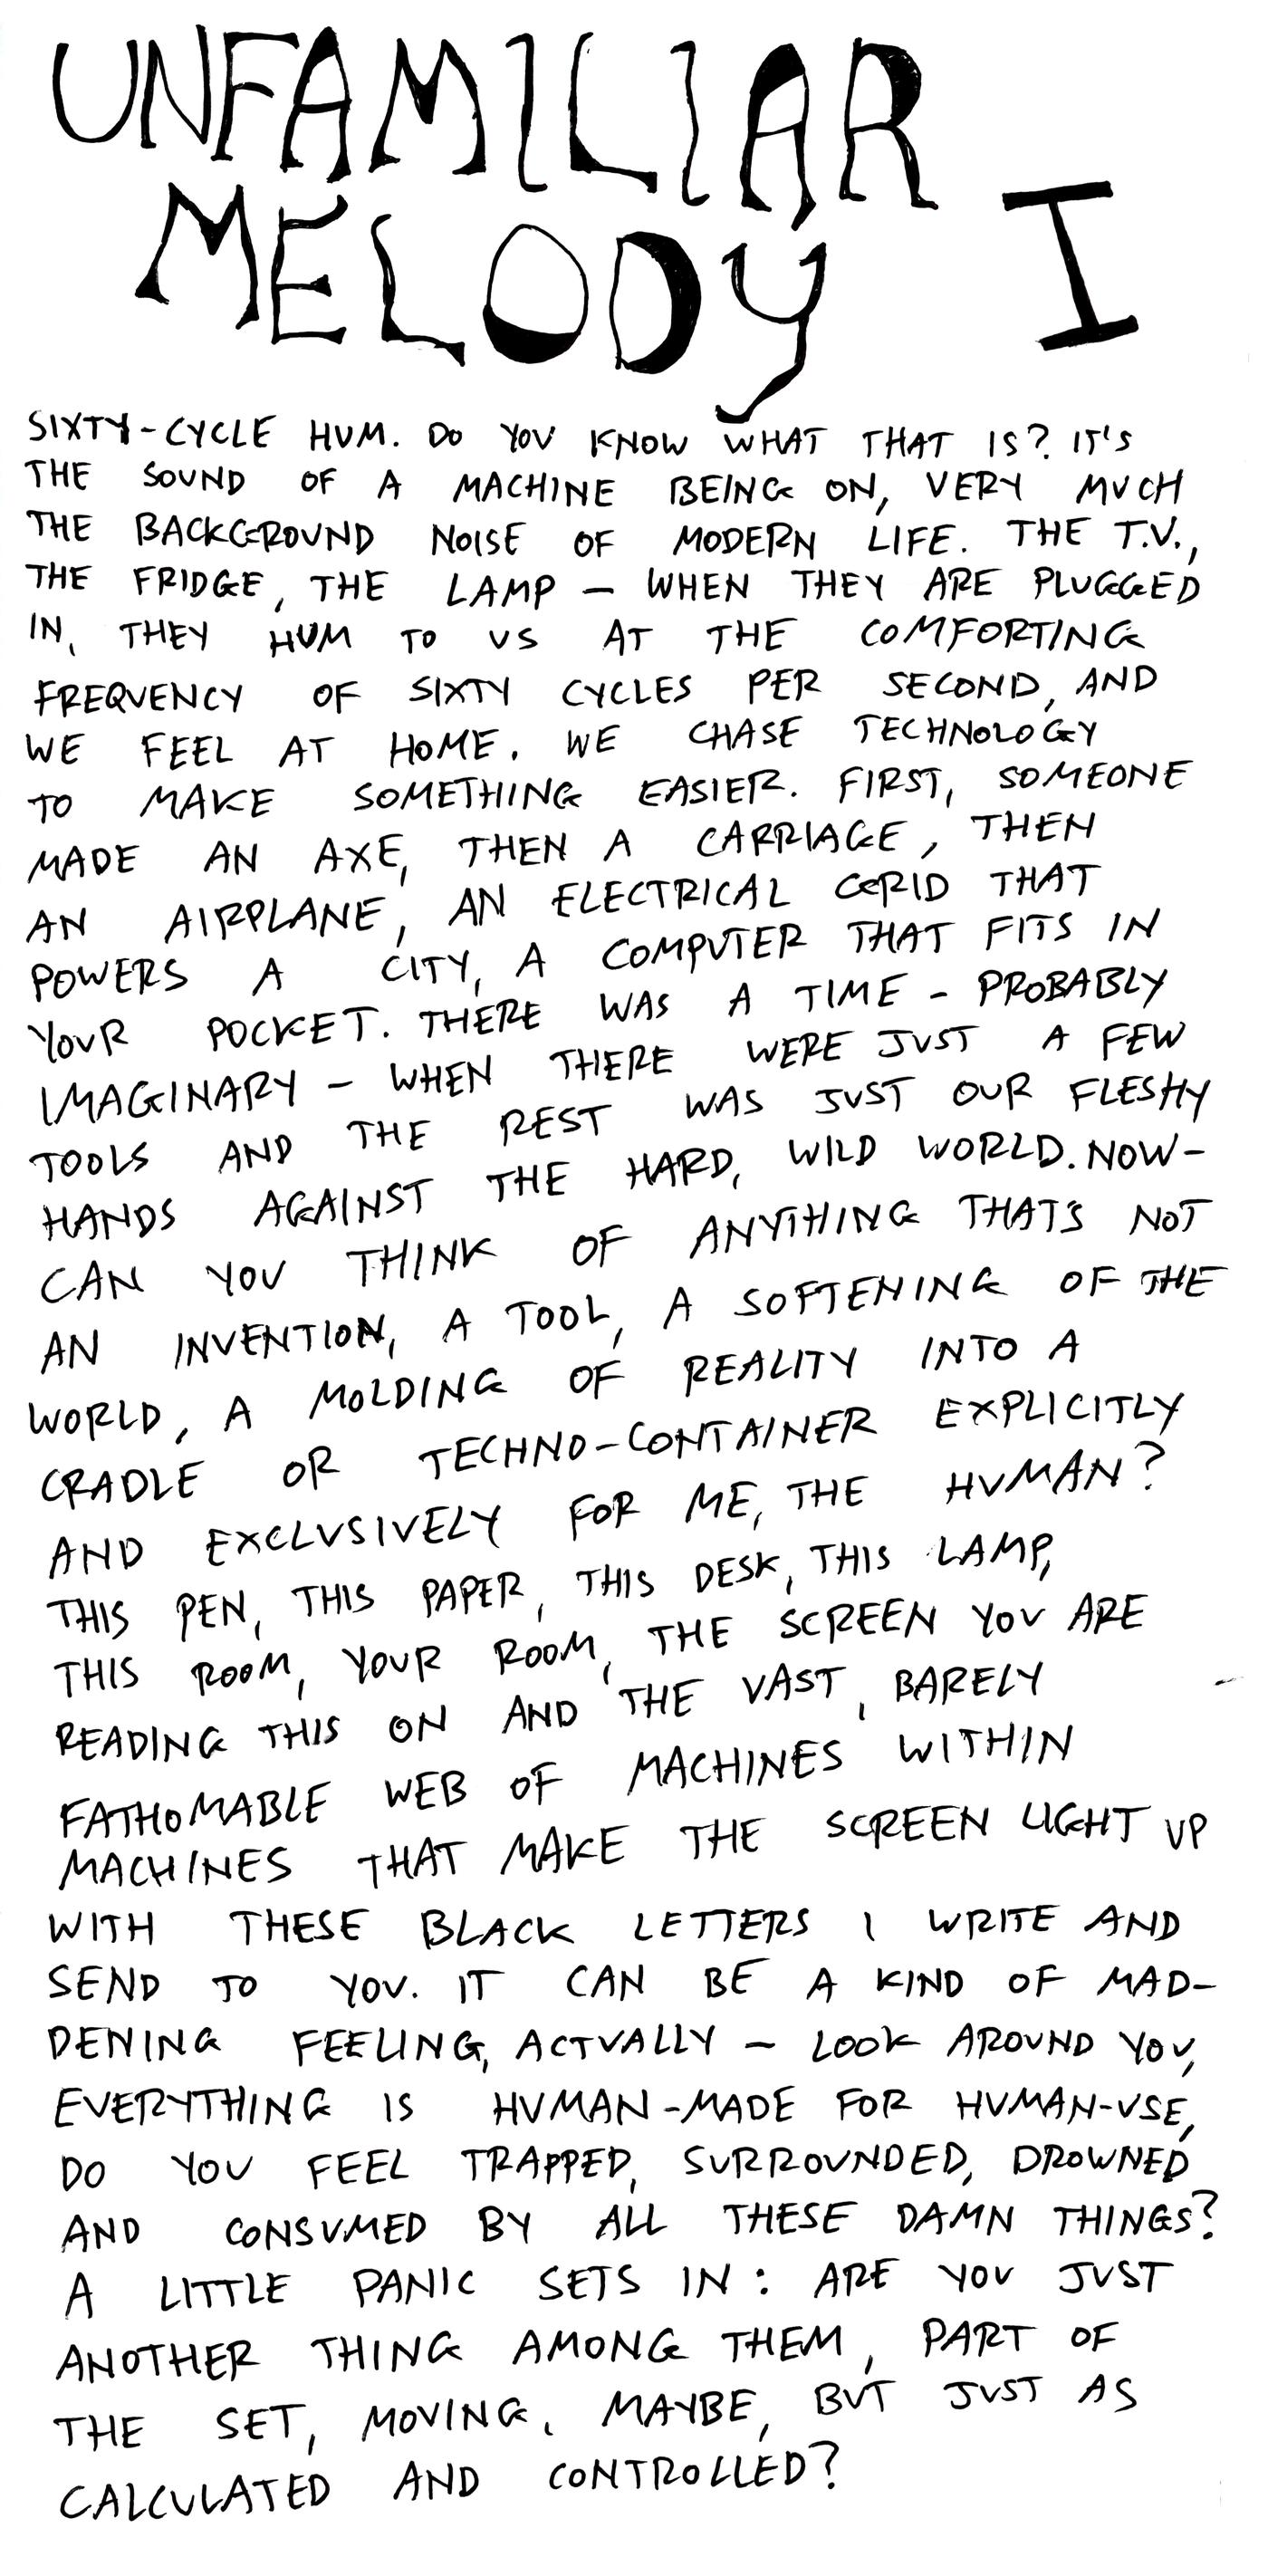 UNFAMILIAR
MELODY I
SIXTY-CYCLE HUM. DO YOU KNOW WHAT THAT IS? IT'S
THE SOUND OF A MACHINE BEING ON, VERY MUCH
THE BACKGROUND NOISE OF MODERN LIFE. THE T.V.,
THE FRIDGE, THE LAMP – WHEN THEY ARE PLUGGED
IN, THEY HUM TO US AT THE COMFORTING
FREQUENCY OF SIXTY CYCLES PER SECOND, AND
WE FEEL AT HOME. WE CHASE TECHNOLOGY
TO MAKE SOMETHING EASIER. FIRST, SOMEONE
MADE AN AXE, THEN A CARRIAGE, THEN
AN AIRPLANE, AN ELECTRICAL GRID THAT
POWERS A CITY, A COMPUTER THAT FITS IN
YOUR POCKET. THERE WAS A TIME – PROBABLY
IMAGINARY – WHEN THERE WERE JUST A FEW
TOOLS AND THE REST WAS JUST OUR FLESHY
HANDS AGAINST THE HARD, WILD WORLD. NOW –
CAN YOU THINK OF ANYTHING THAT'S NOT
AN INVENTION, A TOOL, A SOFTENING OF THE
WORLD, A MOLDING OF REALITY INTO A
CRADLE OR TECHNO-CONTAINER EXPLICITLY
AND EXCLUSIVELY FOR ME, THE HUMAN?
THIS PEN, THIS PAPER, THIS DESK, THIS LAMP,
THIS ROOM, YOUR ROOM, THE SCREEN YOU ARE
READING THIS ON AND THE VAST, BARELY
FATHOMABLE WEB OF MACHINES WITHIN
MACHINES THAT MAKE THE SCREEN LIGHT UP
WITH THESE BLACK LETTERS I WRITE AND
SEND TO YOU. IT CAN BE A KIND OF MAD-
DENING FEELING, ACTUALLY – LOOK AROUND YOU,
EVERYTHING IS HUMAN-MADE FOR HUMAN-USE,
DO YOU FEEL TRAPPED, SURROUNDED, DROWNED
AND CONSUMED BY ALL THESE DAMN THINGS?
A LITTLE PANIC SETS IN: ARE YOU JUST
ANOTHER THING AMONG THEM, PART OF
THE SET, MOVING, MAYBE, BUT JUST AS
CALCULATED AND CONTROLLED?